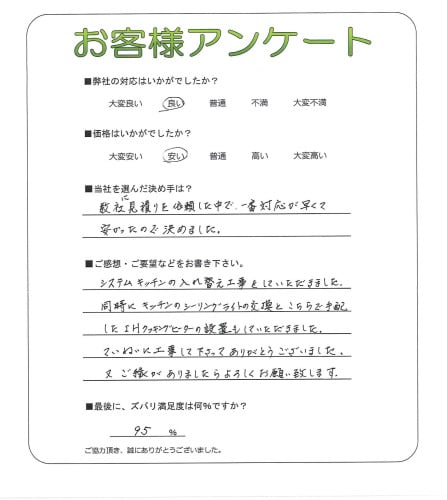 お客様アンケート
■弊社の対応はいかがでしたか？
大変良い 良い 普通 不満 大変不満
■価格はいかがでしたか？
大変安い 安い 普通 高い 大変高い
■当社を選んだ決め手は？
数社に見積りを依頼した中で、一番対応が早くて
安かったので決めました。
■ご感想・ご要望などをお書き下さい。
システムキッチンの入れ替え工事をしていただきました。
同時にキッチンのシーリングライトの交換とこちらで手配
したIHクッキングヒーターの設置もしていただきました。
ていねいに工事して下さってありがとうございました。
又ご縁がありましたらよろしくお願い致します。
■最後に、ズバリ満足度は何％ですか？
95 %
ご協力頂き、誠にありがとうございました。